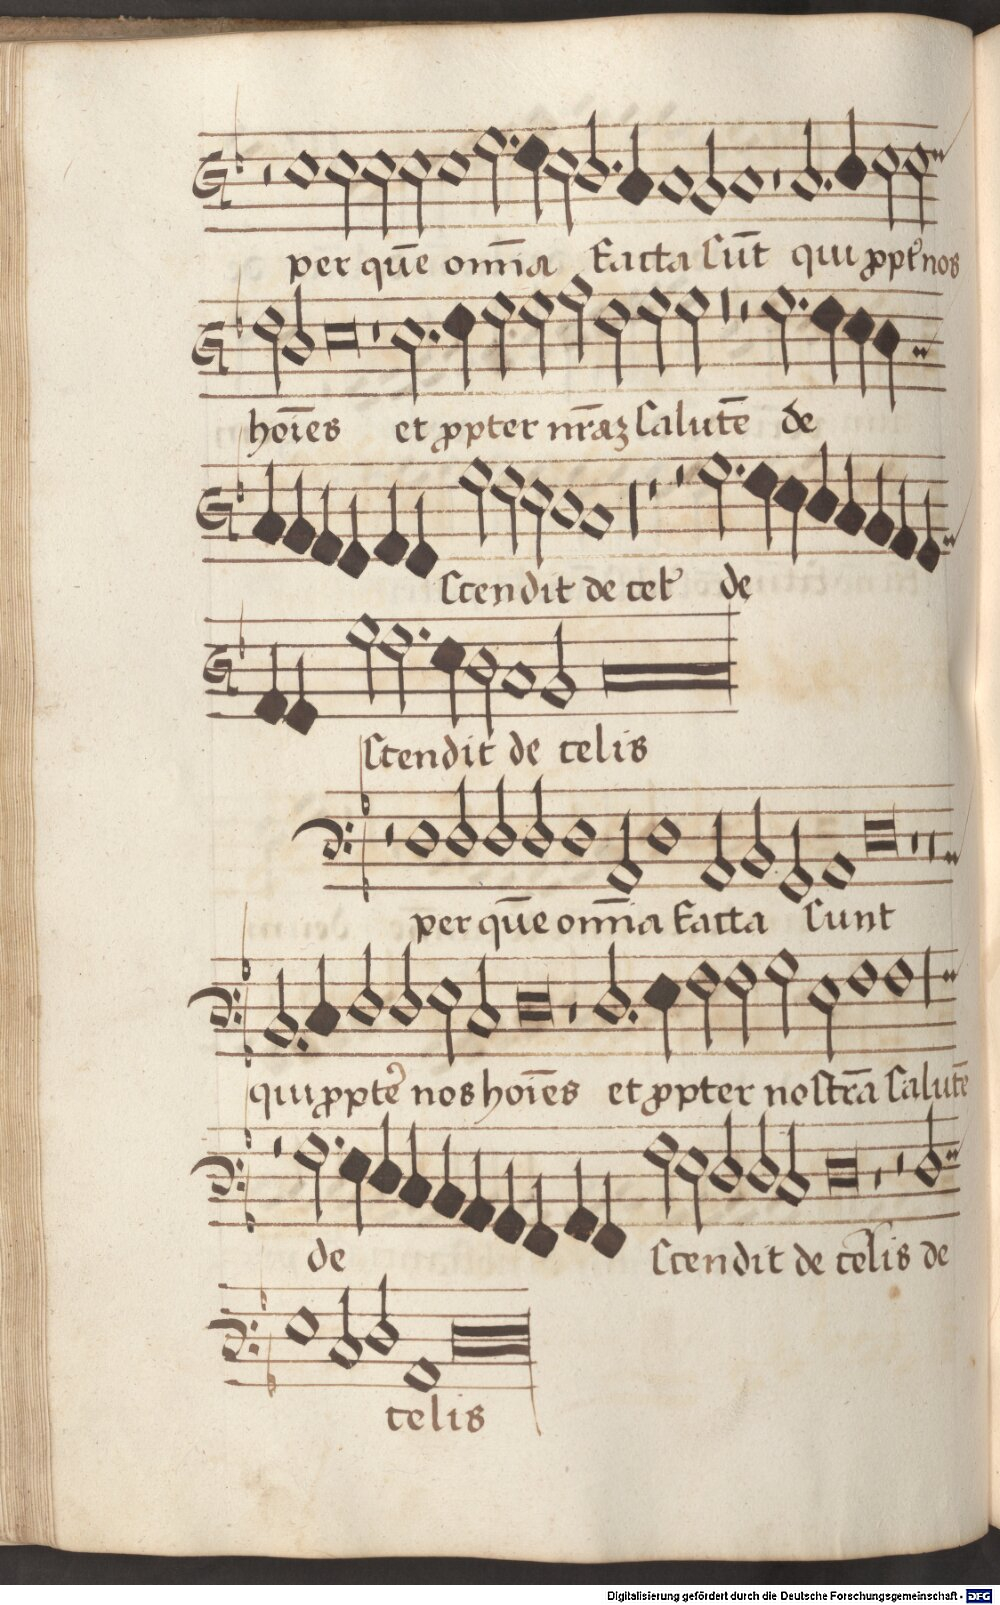 per quē om̄ia facta sūt qui ꝓpt᷑ nos
hoīes et ꝓpter nr̄aꝫ salutē de
scendit de cel᷑ de
scendit de celis
per quē om̄ia facta sunt
qui ꝓpte᷑ nos hoīes et ꝓpter nostrā salutē
de scendit de celis de
celis
Digitalisierung gefördert durch die Deutsche Forschungsgemeinschaft - DFG